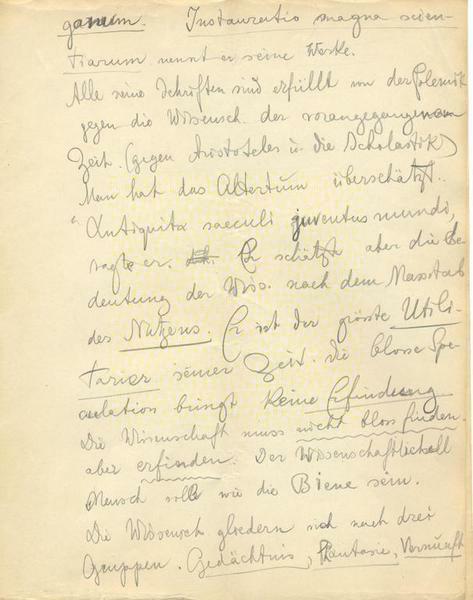 ganum. Instauratio magna scien-
tiarum nennt er seine Werke.
Alle seine Schriften sind erfüllt von der Polemik
gegen die Wissensch. der vorangegangenen
Zeit. (gegen Aristoteles u. die Scholastik)
Man hat das Altertum überschätzt.
"Antiquita saeculi juventus mundi,
sagte er. Er schätzt aber die Be-
deutung der Wiss. nach dem Masstab
des Nutzens. Er ist der grösste Utili-
tarier seiner Zeit. Die blosse Spe-
culation bringt keine Erfindung
Die Wissenschaft muss nicht bloss finden
aber erfinden. Der Wissenschaftliche
Mensch soll wie die Biene sein.
Die Wissensch. gliedern sich nach drei
Gruppen. Gedächtnis, Phantasie, Vernunft